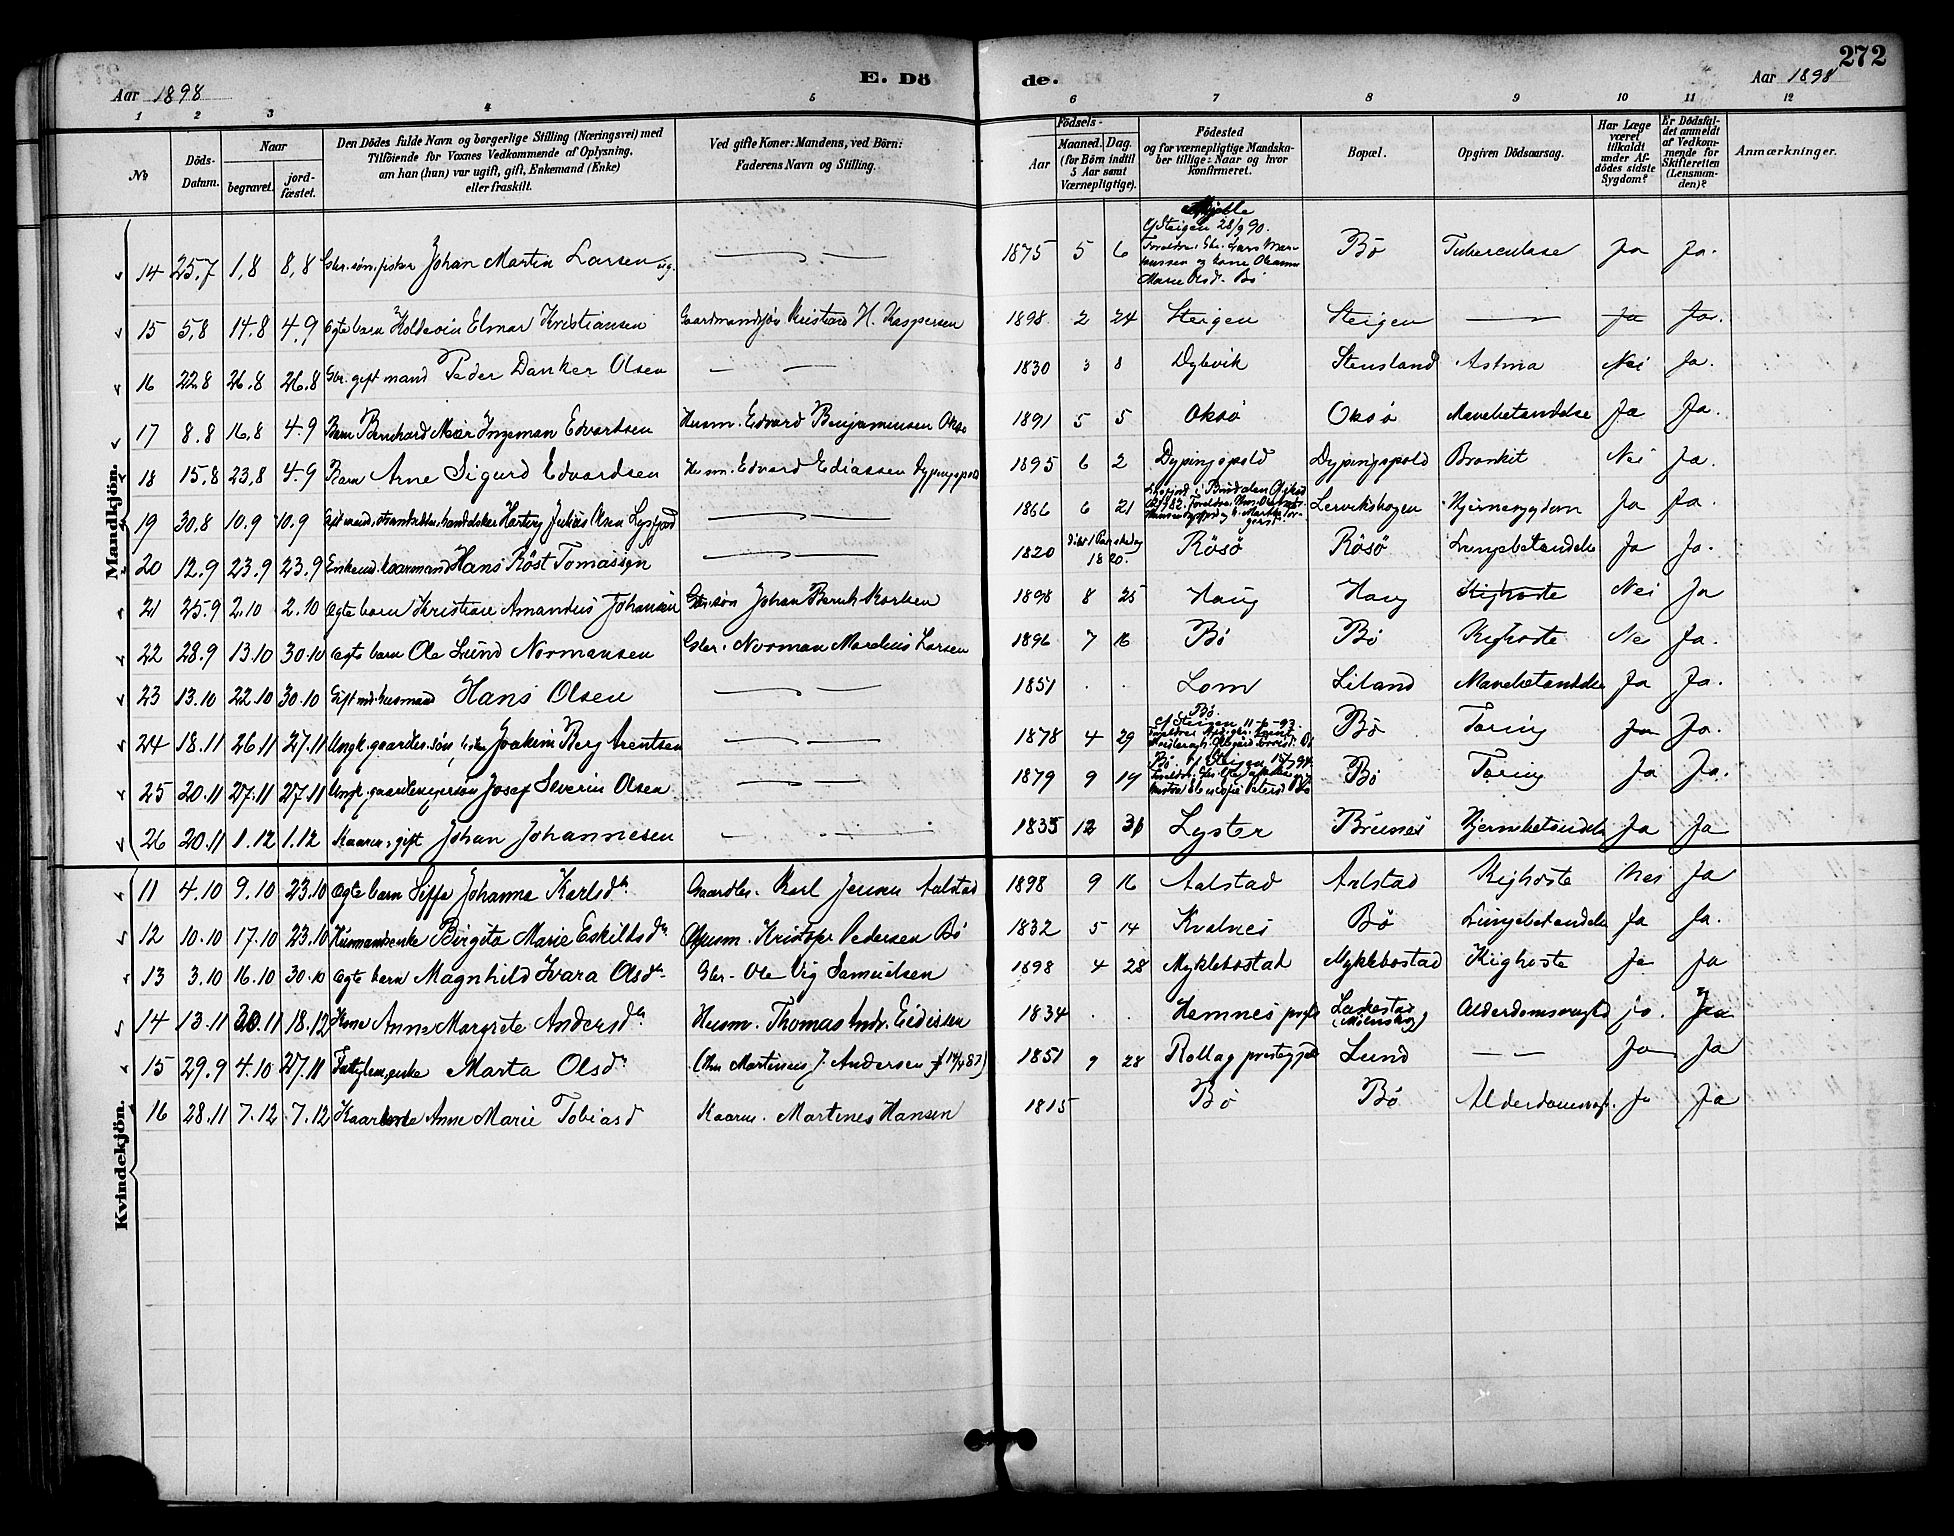 272
E. Dö de.
Aar 1898
Aar 1898
1 2 3 4 5 6 7 8 9 10 11 12
No
Döds-Datum.
Naar
begravet.
jord-fæstet.
Den Dödes fulde Navn og borgerlige Stilling (Næringsvei) med
Tilföiende for Voxnes Vedkommende af Oplysning,
om han (hun) var ugift, gift, Enkemand (Enke)
eller fraskilt.
Ved gifte Koner: Mandens, ved Börn:
Faderens Navn og Stilling.
Födsels-
Aar
Maaned. Dag.
(for Börn indtil
5 Aar samt
Værnepligtige).
Födested
og for værnepligtige Mandska-
ber tillige: Naar og hvor
konfirmeret.
Bopæl.
Opgiven Dödsaarsag.
Har Læge
været
tilkaldt
under Af-
dödes sidste
Sygdom?
Er Dödsfal-
det anmeldt
af Vedkom-
mende for
Skifteretten
(Lensman-
den)?
Anmærkninger.
Mandkjön.
14 25.7 1.8 8.8 Gbr. søn, fisker Johan Martin Larsen ug. 1875 5 6 Steigen 28/9 90. Marie Olsd. Bö Bö Tuberculose Ja Ja.
15 5.8 14.8 4.9 Ægte barn Holdevin Elmar Kristiansen Gaardmandsøn Kristian H. Kaspersen 1898 2 24 Steigen Steigen — Ja Ja.
16 22.8 26.8 26.8 Gbr. gift mand Peder Danker Olsen 1830 3 8 Dybvik Stensland Astma Nei Ja.
17 8.8 16.8 4.9 Barn Bernhard Meier Ingeman Edvardsen Husm. Edvard Benjaminsen Oksø 1891 5 5 Oksø Oksø Mavebetændelse Ja Ja.
18 15.8 23.8 4.9 Barn Arne Sigurd Edvardsen Husm. Edvard Ediassen Dypingspold 1895 6 2 Dypingspold Dypingspold Bronkit Nei Ja.
19 30.8 10.9 10.9 Gift mand, handelsker Hartvig Julius Olsen Lysfjord 1866 6 21 Lervikshogen Hjernesygdom Ja Ja.
20 12.9 23.9 23.9 Enkemd. kaarmand Hans Röst Tomassen 1820 1820. Rösö Rösö Lungebetændelse Ja Ja.
21 25.9 2.10 2.10 Ægte barn Kristian Amandus Johansen Gbr. søn Johan Bernh Karlsen 1898 8 25 Haug Haug Kighoste Nei Ja
22 28.9 13.10 30.10 Ægte barn Ole Lund Normansen Gbr. Norman Marelius Larsen 1896 7 16 Bö Bö Kighoste Nei Ja.
23 13.10 22.10 30.10 Gift md. husmand Hans Olsen 1851 . . Lom Leland Mavebetændelse Ja Ja.
24 18.11 26.11 27.11 Ungk. gaardbr. søn, fisker Joakim Berg Arentsen 1878 4 29 Bö. Steigen 11-6-93. Bö Tæring Ja Ja.
25 20.11 27.11 27.11 Ungk. gaardbrugersøn Josef Severin Olsen 1879 9 19 Bö Steigen Bö Tæring Ja Ja.
26 20.11 1.12 1.12 Kaarm. gift Johan Johannesen 1835 12 31 Lyster Brunes Hjernbetændelse Ja Ja
Kvindekjön.
11 4.10 9.10 23.10 Ægte barn Siffa Johanna Karlsdr. Gaardbr. Karl Jensen Aalstad 1898 9 16 Aalstad Aalstad Kighoste Nei Ja
12 10.10 17.10 23.10 Husmandsenke Birgita Marie Eskildsdr. Husm. Kristofer Pedersen Bö 1832 5 14 Kvalnes Bö Lungebetændelse Ja Ja.
13 3.10 16.10 30.10 Ægte barn Magnhild Ivara Olsdr. Gbr. Ole Vig Samuelsen 1898 4 28 Myklebostad Myklebostad Kighoste Ja Ja
14 13.11 20.11 18.12 Kone Anne Margrete Andersdr. Husm. Thomas Andr. Eidissen 1834 . . Hemnes prgld Laskestad Alderdomssvaghed ja. Ja
15 29.9 4.10 27.11 Fattiglem, enke Marta Olsdr. (Hm Martinus J. Andersen † 14/4 87) 1851 9 28 Rollag prestegjeld Lund — Ja Ja
16 28.11 7.12 7.12 Kaarenke Anne Marie Tobiasd Kaarm. Martines Hansen 1815 Bö Bö Alderdomssvagh. Ja Ja